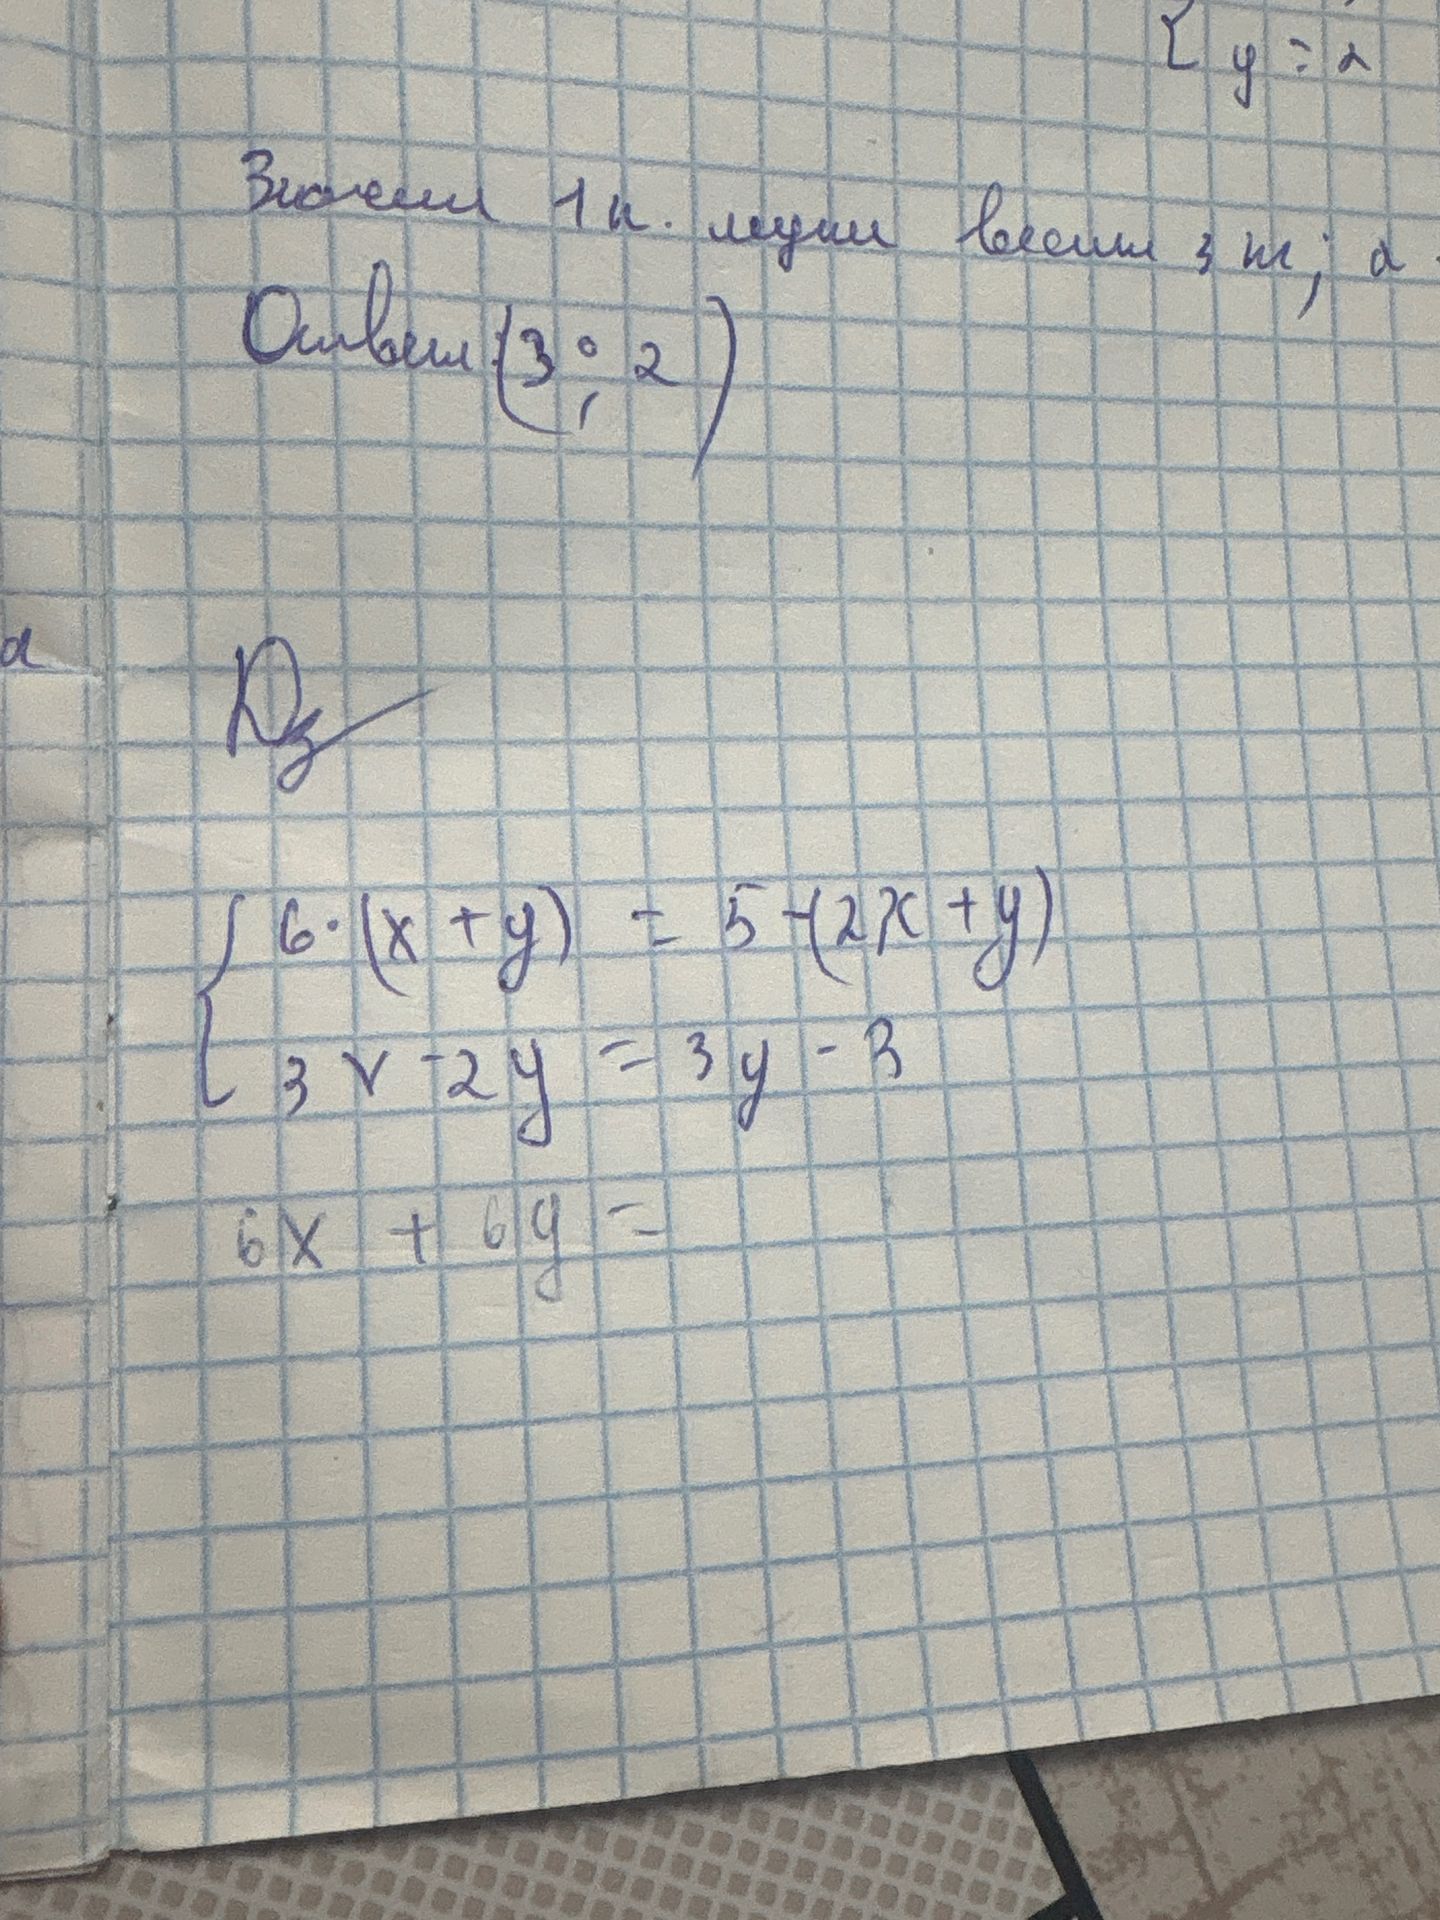 { y = 2
Значит 1 к. муки весит 3 т; а
Ответ: (3; 2)
а
Дз
{ 6·(x + y) = 5-(2x + y)
3x - 2y = 3y - 3
6x + 6y =